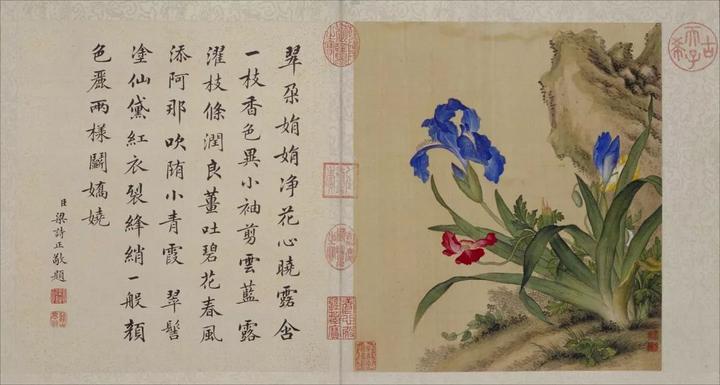 翠朶娟娟净花心曉露含
一枝香色異小袖剪雲藍露
濯枝條潤良薑吐碧花春風
添阿那吹随小青霞 翠髻
塗仙黛紅衣裂絳綃一般顏
色麗兩樣鬭嬌嬈
臣梁詩正敬題
古希天子